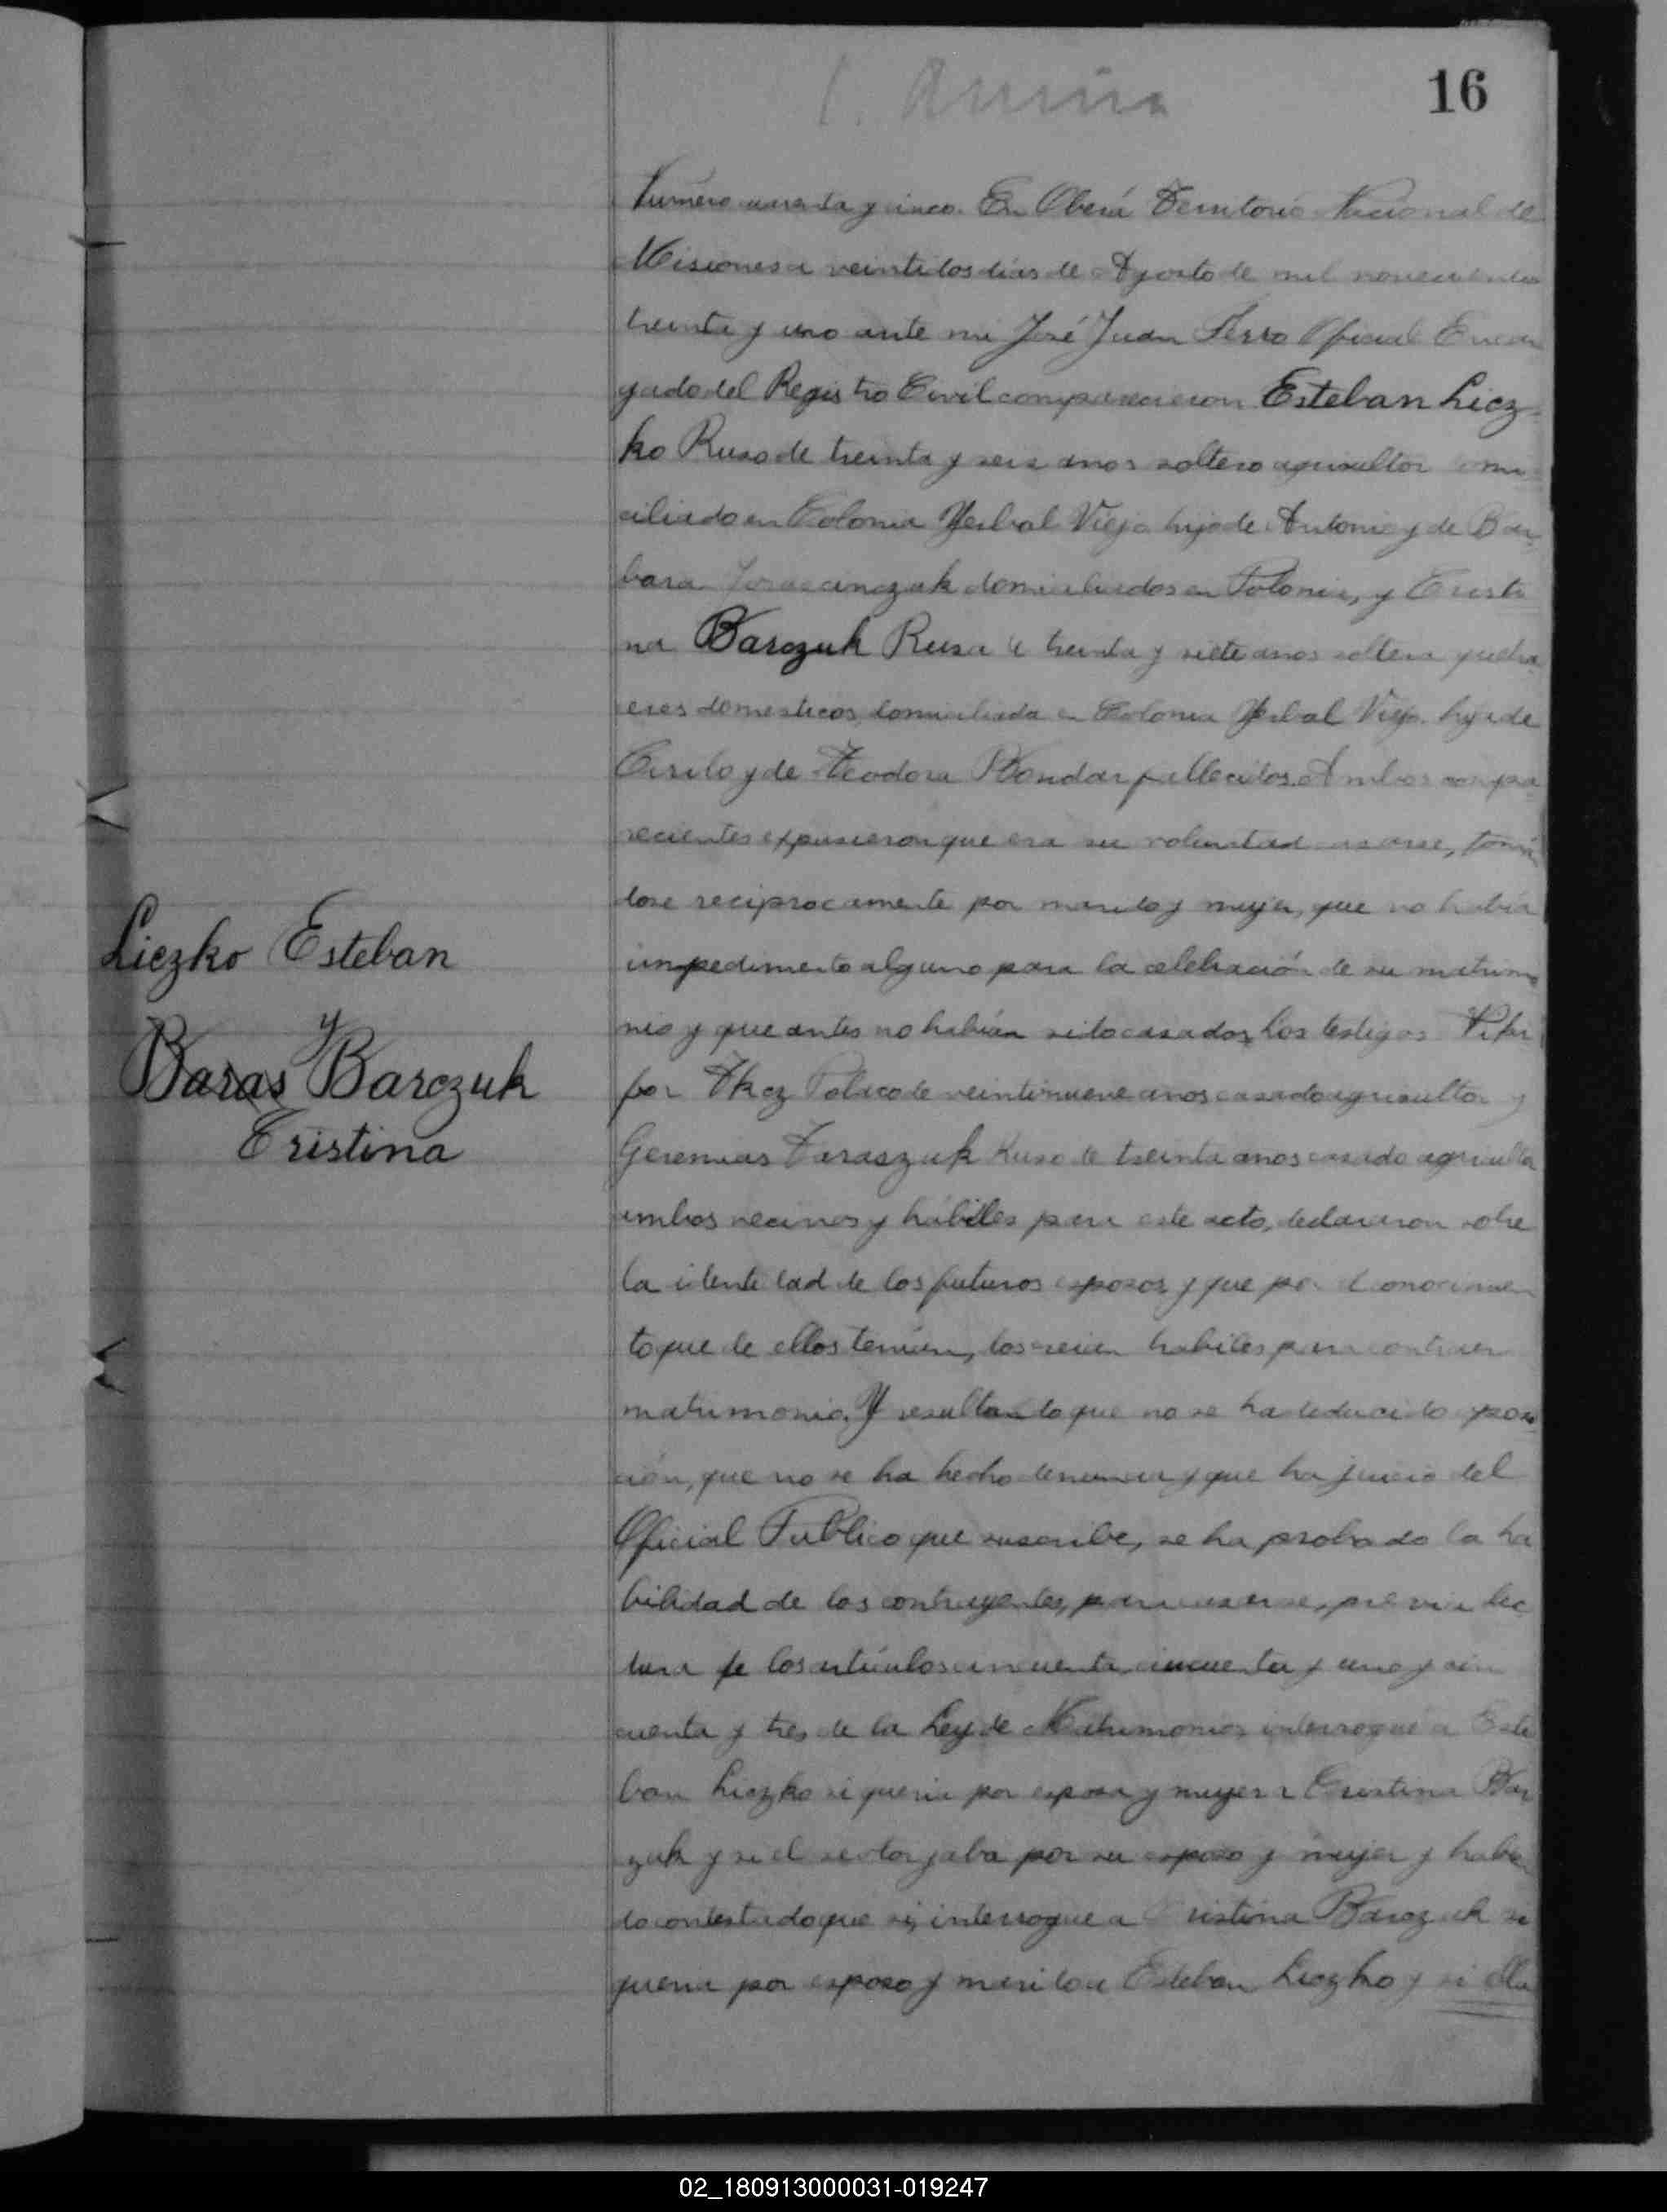 16
Número cuarenta y cinco. En Oberá Territorio Nacional de
Misiones a veintidos dias de Agosto de mil novecientos
treinta y uno ante mi José Juan Ferro Oficial Encar
gado del Registro Civil comparecieron Esteban Licz-
ko Ruso de treinta y seis anos soltero agricultor domi
ciliado en Colonia Yerbal Viejo hijo de Antonio y de Bar
bara domiciliados en Polonia, y Cristi
na Barczuk Rusa de treinta y siete anos soltera queha
ceres domesticos domiciliada en Colonia Yerbal Viejo hija de
Cirilo y de Teodora Bondar fallecidos. Ambos compa
recientes expusieron que era su voluntad casarse, tomán
dose reciprocamente por marido y mujer, que no habia
impedimento alguno para la celebración de su matrimo
nio y que antes no habian sido casados, los testigos
Polaco de veintinueve anos casado agricultor y
Geremias Taraszuk Ruso de treinta anos casado agricultor
ambos vecinos y hábiles para este acto, declararon sobre
la identidad de los futuros esposos, y que por el conocimien
to que de ellos tenian, los creian habiles para contraer
matrimonio. Y resultando que no se ha deducido oposi
ción, que no se ha hecho denuncia y que ha juicio del
Oficial Publico que suscribe, se ha probado la ha
bilidad de los contrayentes, para casarse, previa lec
tura de los artículos cincuenta, cincuenta y uno y cin
cuenta y tres de la Ley de Matrimonios interrogué a Este
ban Liczko si queria por esposa y mujer a Cristina Bar
zuk y si el se otorgaba por su esposo y mujer y habien
do contestado que si, interrogue a Cristina Barczuk si
queria por esposo y marido a Esteban Liczko y si ella
Liczko Esteban
y
Baras Barczuk
Cristina
02_180913000031-019247